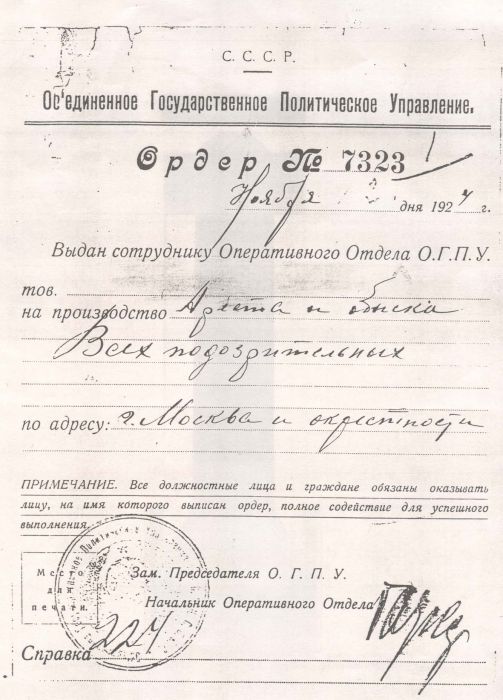 С. С. С. Р.
Об'единенное Государственное Политическое Управление.
Ордер № 7323
Ноября дня 1924 г.
Выдан сотруднику Оперативного Отдела О.Г.П.У.
тов.
на производство Ареста и обыска
Всех подозрительных
по адресу: г. Москва и окрестности
ПРИМЕЧАНИЕ. Все должностные лица и граждане обязаны оказывать
лицу, на имя которого выписан ордер, полное содействие для успешного
выполнения.
Место
для
печати.
Зам. Председателя О. Г. П. У.
Начальник Оперативного Отдела
Справка 224